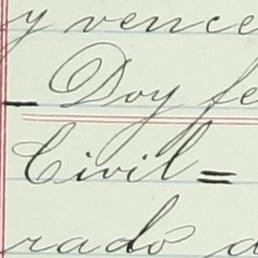 y vence
- Doy fe
Civil =
rado a